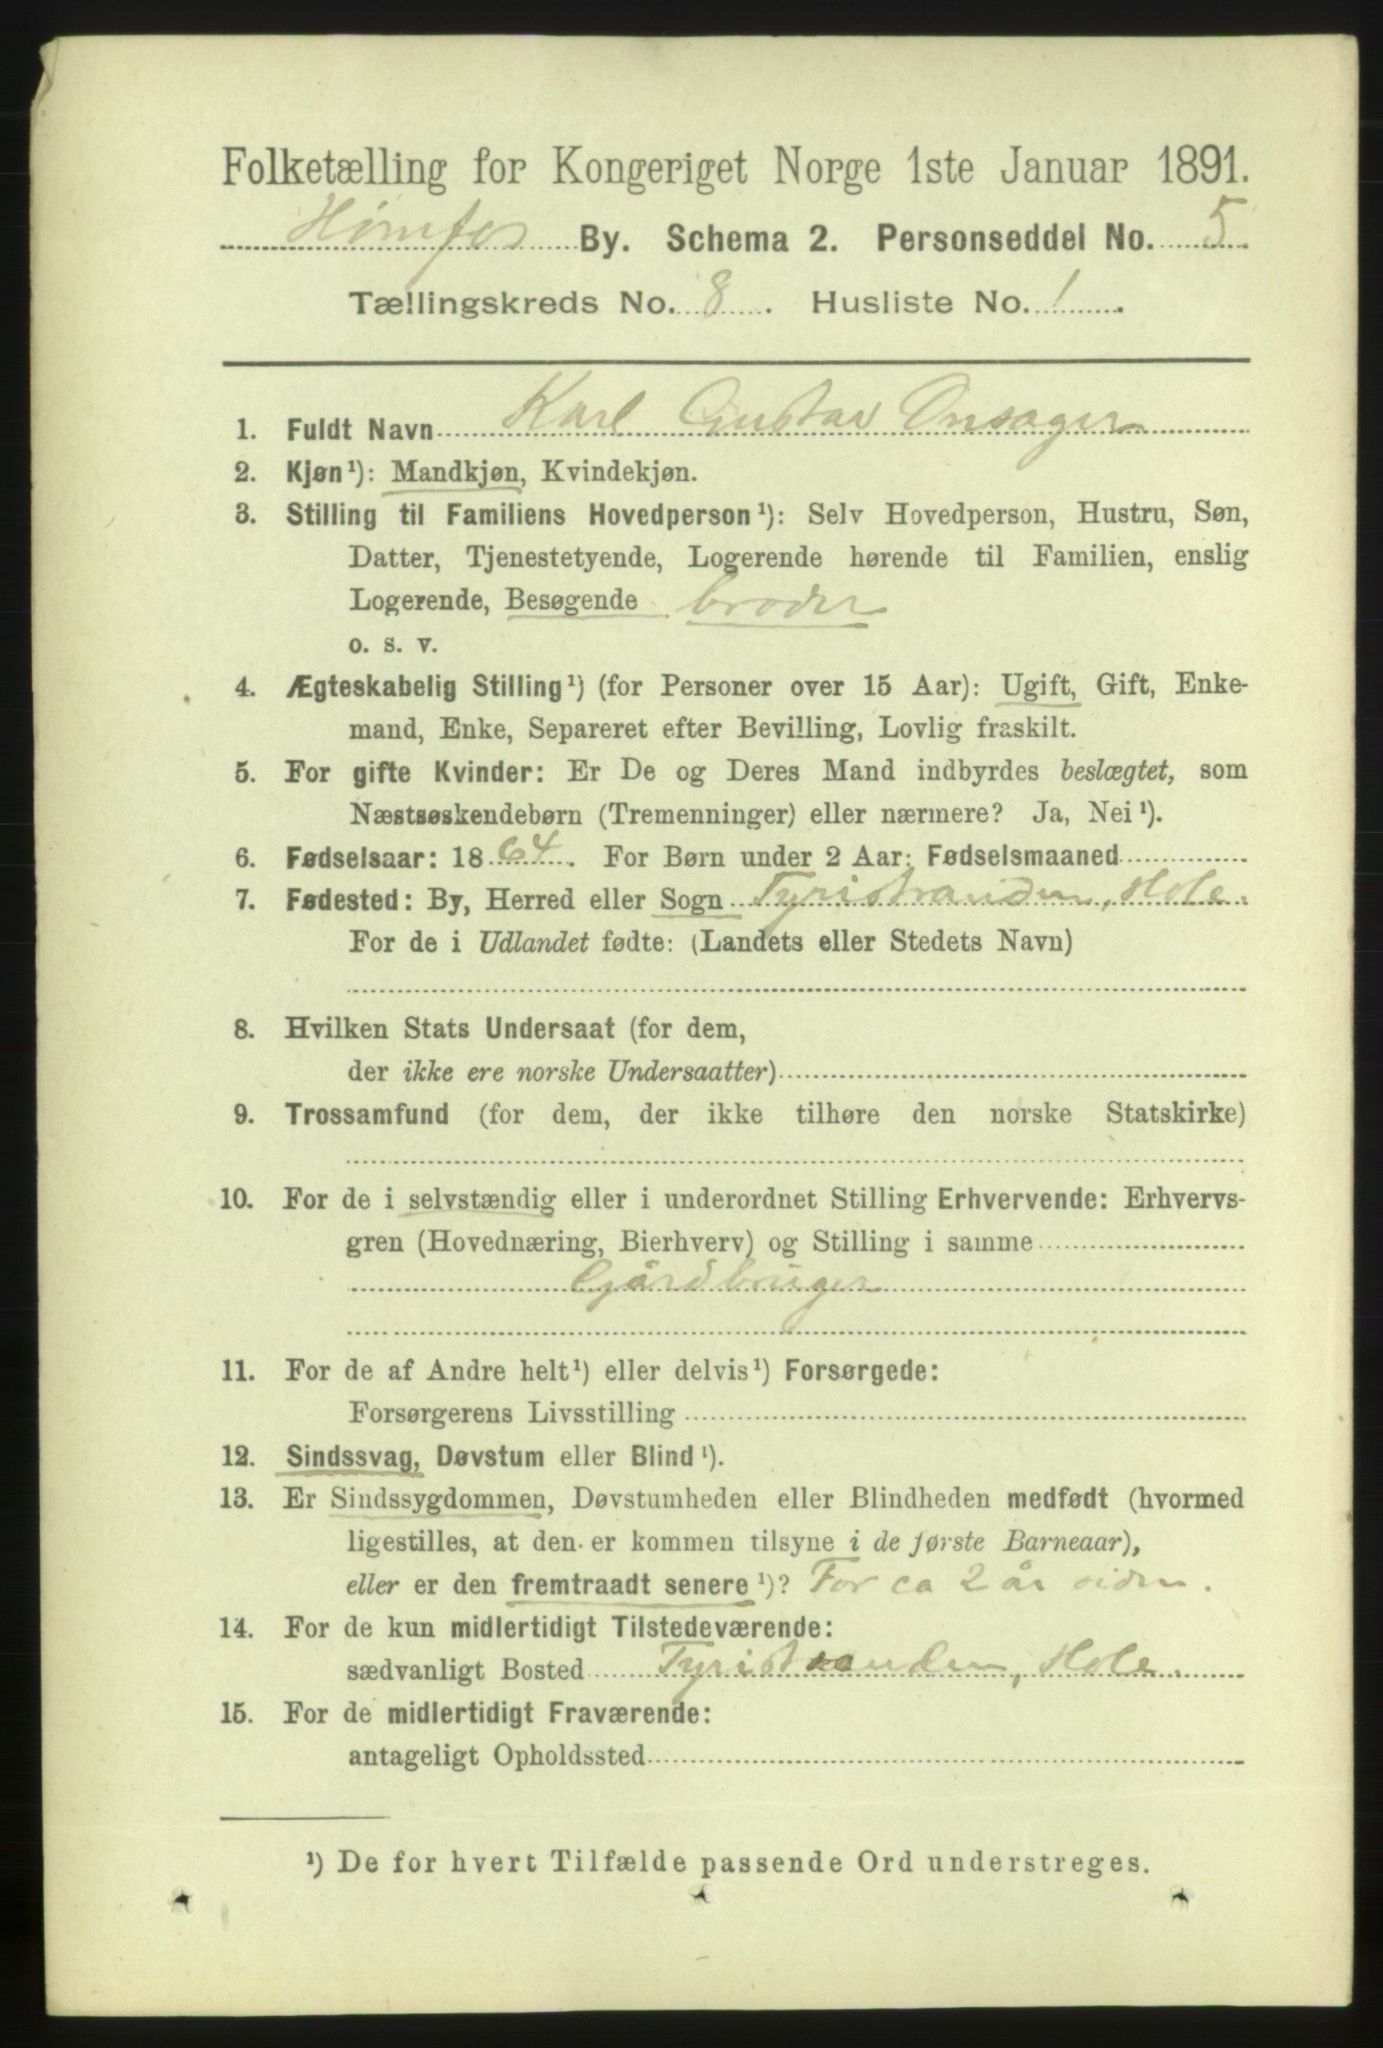 Folketælling for Kongeriget Norge 1ste Januar 1891.
Hønefos By. Schema 2. Personseddel No. 5.
Tællingskreds No. 8. Husliste No. 1.
1. Fuldt Navn Karl Gustav Onsager
2. Kjøn¹): Mandkjøn, Kvindekjøn.
3. Stilling til Familiens Hovedperson¹): Selv Hovedperson, Hustru, Søn,
Datter, Tjenestetyende, Logerende hørende til Familien, enslig
Logerende, Besøgende broder
o. s. v.
4. Ægteskabelig Stilling¹) (for Personer over 15 Aar): Ugift, Gift, Enke-
mand, Enke, Separeret efter Bevilling, Lovlig fraskilt.
5. For gifte Kvinder: Er De og Deres Mand indbyrdes beslægtet, som
Næstsøskendebørn (Tremenninger) eller nærmere? Ja, Nei¹).
6. Fødselsaar: 1864. For Børn under 2 Aar: Fødselsmaaned
7. Fødested: By, Herred eller Sogn Tyristranden, Hole.
For de i Udlandet fødte: (Landets eller Stedets Navn)
8. Hvilken Stats Undersaat (for dem,
der ikke ere norske Undersaatter)
9. Trossamfund (for dem, der ikke tilhøre den norske Statskirke)
10. For de i selvstændig eller i underordnet Stilling Erhvervende: Erhvervs-
gren (Hovednæring, Bierhverv) og Stilling i samme
Gårdbruger
11. For de af Andre helt¹) eller delvis¹) Forsørgede:
Forsørgerens Livsstilling
12. Sindssvag, Døvstum eller Blind¹).
13. Er Sindssygdommen, Døvstumheden eller Blindheden medfødt (hvormed
ligestilles, at den er kommen tilsyne i de første Barneaar),
eller er den fremtraadt senere¹)? For ca 2 år siden.
14. For de kun midlertidigt Tilstedeværende:
sædvanligt Bosted Tyristranden, Hole.
15. For de midlertidigt Fraværende:
antageligt Opholdssted
¹) De for hvert Tilfælde passende Ord understreges.